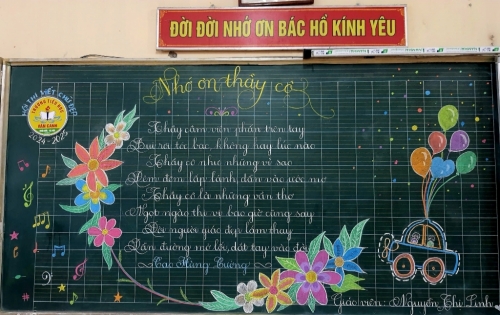 ĐỜI ĐỜI NHỚ ƠN BÁC HỒ KÍNH YÊU
HỘI THI VIẾT CHỮ ĐẸP
TRƯỜNG TIỂU HỌC
2024 - 2025
Nhớ ơn thầy cô
Thầy cầm viên phấn trên tay
Bụi rơi tóc bạc không hay lúc nào
Thầy cô như những vì sao
Đêm đêm lấp lánh dẫn vào ước mơ
Thầy cô là những vần thơ
Ngọt ngào thi vị bao giờ cũng say
Đời người giáo đẹp lắm thay
Dẫn đường mở lối, dắt tay vào đời
Cao Hùng Cường
Giáo viên: Nguyễn Thị Linh